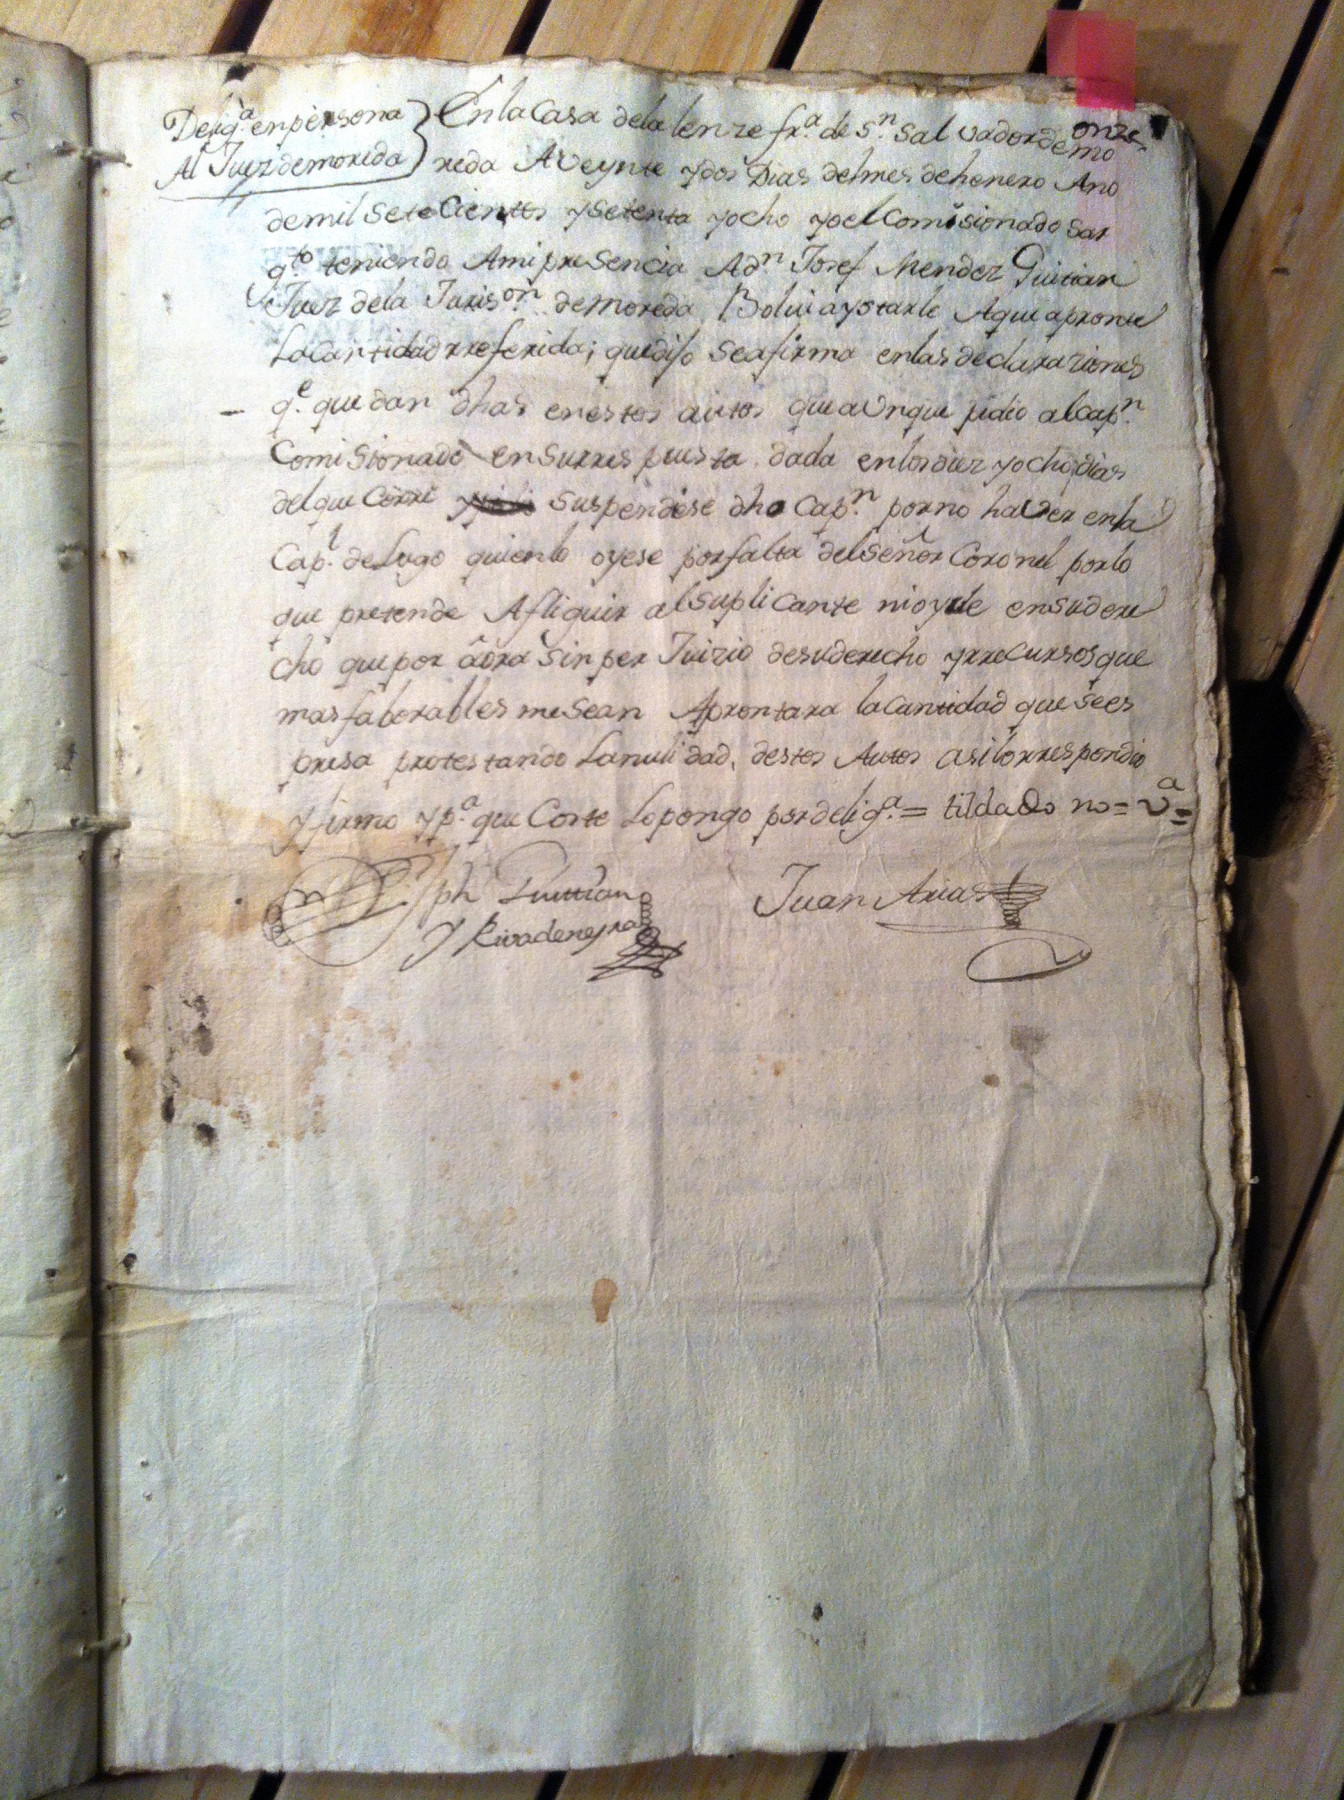 onze
Delig.ª en persona
Al Juez de moreda
En la Casa de la lenze fr.ª de S.n Salvador de mo
reda A Veynte y dos Dias del mes de henero Ano
de mil sete Cientos y setenta y ocho yo el Comisionado sar
g.to teniendo Ami presencia A d.n Josef Mendez Guitian
Juez de la Juris.on de Moreda Bolui aystarle Aque apronte
la Cantidad rreferida; que dijo se afirma en las declaraziones
q.e quedan dhas en estos autos que aunque pidio al cap.n
Comisionado en su rrespuesta dada en los diez y ocho dias
del que Corre suspendise dho Cap.n por no haver en la
Cap.l de Lugo quien lo oyese por falta del Señor Coronel por lo
que pretende Afliguir al suplicante ni oyrle en su dere
cho que por aôra sin per Juizio de su derecho y rrecursos que
mas faborables me sean Aprontara la cantidad que se es
presa protestando la nulidad, destos Autos asi lo rrespondio
y firmo y p.ª que Conste lo pongo por delig.ª = tildado no = v.ª =
Jph Guitian
y Rivadeneyra
Juan Arias